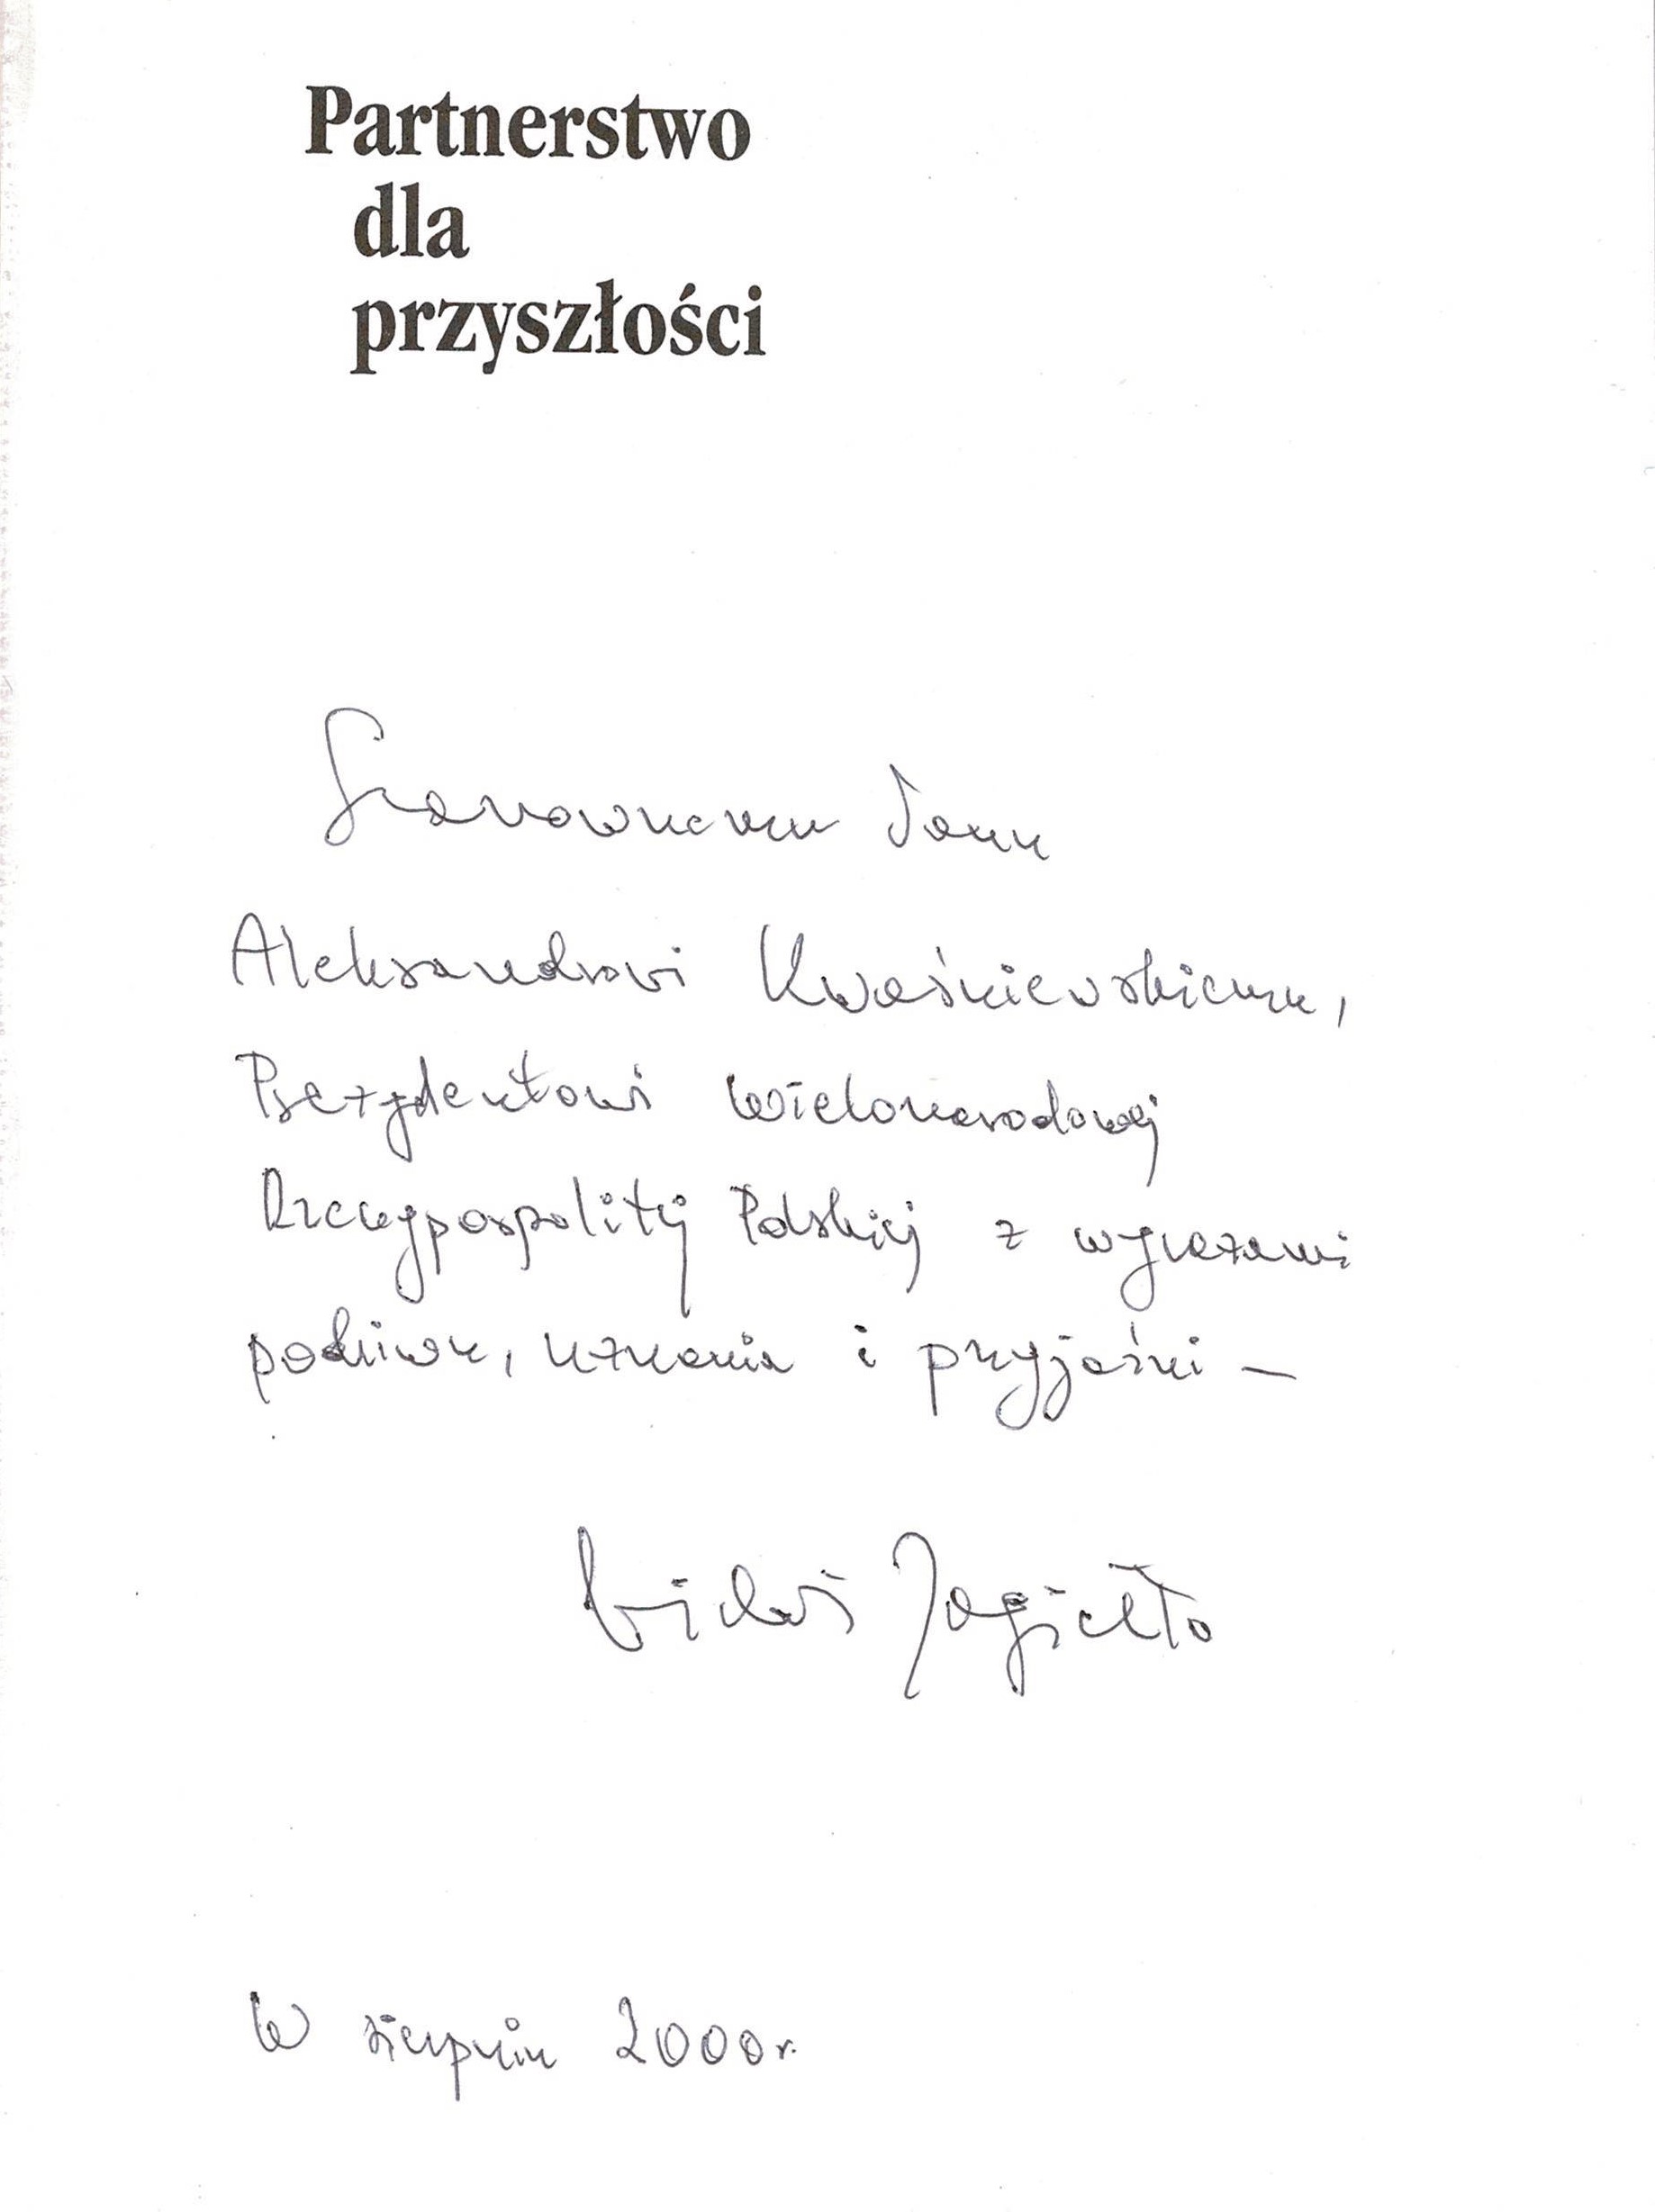 Partnerstwo
dla
przyszłości
Szanownemu Panu
Aleksandrowi Kwaśniewskiemu,
Prezydentowi wielonarodowej
Rzeczypospolitej Polskiej z wyrazami
podziwu, uznania i przyjaźni –
Jagiełło
W sierpniu 2000 r.